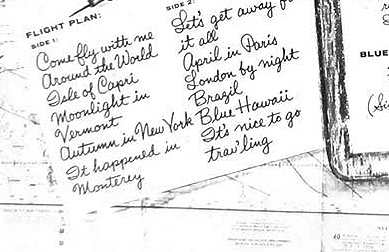 FLIGHT PLAN:
SIDE 1:
Come fly with me
Around the World
Isle of Capri
Moonlight in
Vermont
Autumn in New York
It happened in
Monterey
SIDE 2:
Let's get away
it all
April in Paris
London by night
Brazil
Blue Hawaii
It's nice to go
trav'ling
BLUE